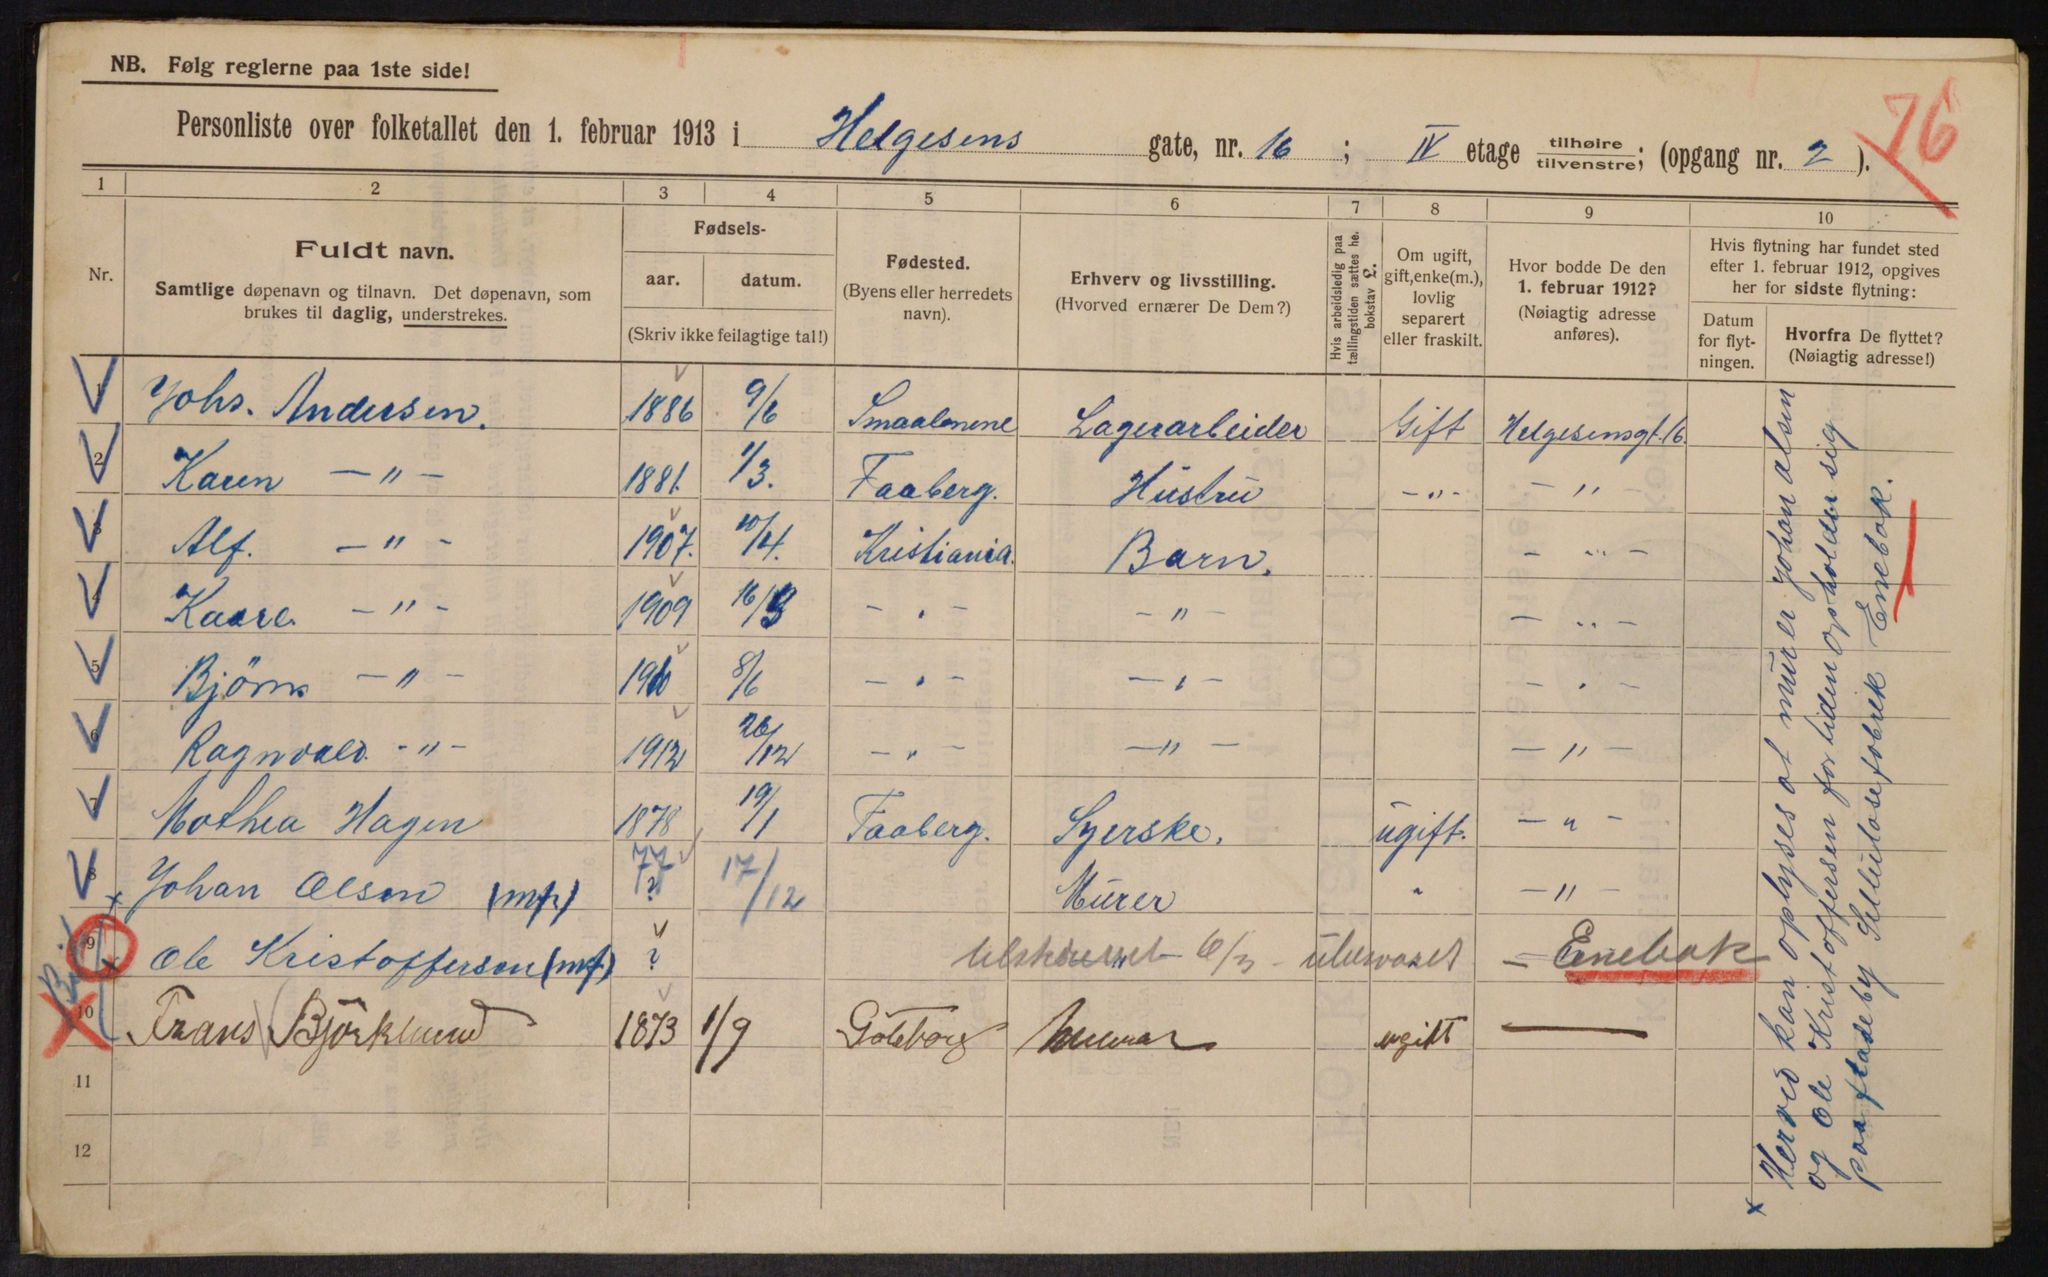 NB. Følg reglerne paa 1ste side!
76
Personliste over folketallet den 1. februar 1913 i Helgesens gate, nr. 16 ; IV etage tilhøire/tilvenstre; (opgang nr. 2 ).
1 2 3 4 5 6 7 8 9 10
Nr.
Fuldt navn.
Samtlige døpenavn og tilnavn. Det døpenavn, som
brukes til daglig, understrekes.
Fødsels-
aar. datum.
(Skriv ikke feilagtige tal!)
Fødested.
(Byens eller herredets
navn).
Erhverv og livsstilling.
(Hvorved ernærer De Dem?)
Hvis arbeidsledig paa
tællingstiden sættes he.
bokstav £.
Om ugift,
gift, enke(m.),
lovlig
separert
eller fraskilt.
Hvor bodde De den
1. februar 1912?
(Nøiagtig adresse
anføres).
Hvis flytning har fundet sted
efter 1. februar 1912, opgives
her for sidste flytning:
Datum
for flyt-
ningen.
Hvorfra De flyttet?
(Nøiagtig adresse!)
1 Johs. Andersen. 1886 9/6 Smaalenene Lagerarbeider Gift Helgesensgt. 16.
2 Karen — " — 1881. 1/3. Faaberg. Hustru - " - — " —
3 Alf. — " — 1907. 10/4. Kristiania. Barn. — " —
4 Kaare. — " — 1909 16/3 — " — — " — — " —
5 Bjørn — " — 1910 8/6 — " — — " — — " —
6 Ragnvald. - " - 1912 26/12 — " — — " — — " —
7 Mathea Hagen 1878 19/1 Faaberg. Syerske. ugift. — " —
8 Johan Olsen (mf) 77 ? 17/12 Murer " — " —
9 Ole Kristoffersen (mf) ? 6/3 - — Enebak
10 Frans Björklund 1873 1/9 Göteborg ugift —
11
12
x Herved kan oplyses at murer Johan Olsen
og Ole Kristoffersen for tiden opholder sig
paa Fladeby Sellulosefabrik Enebak.